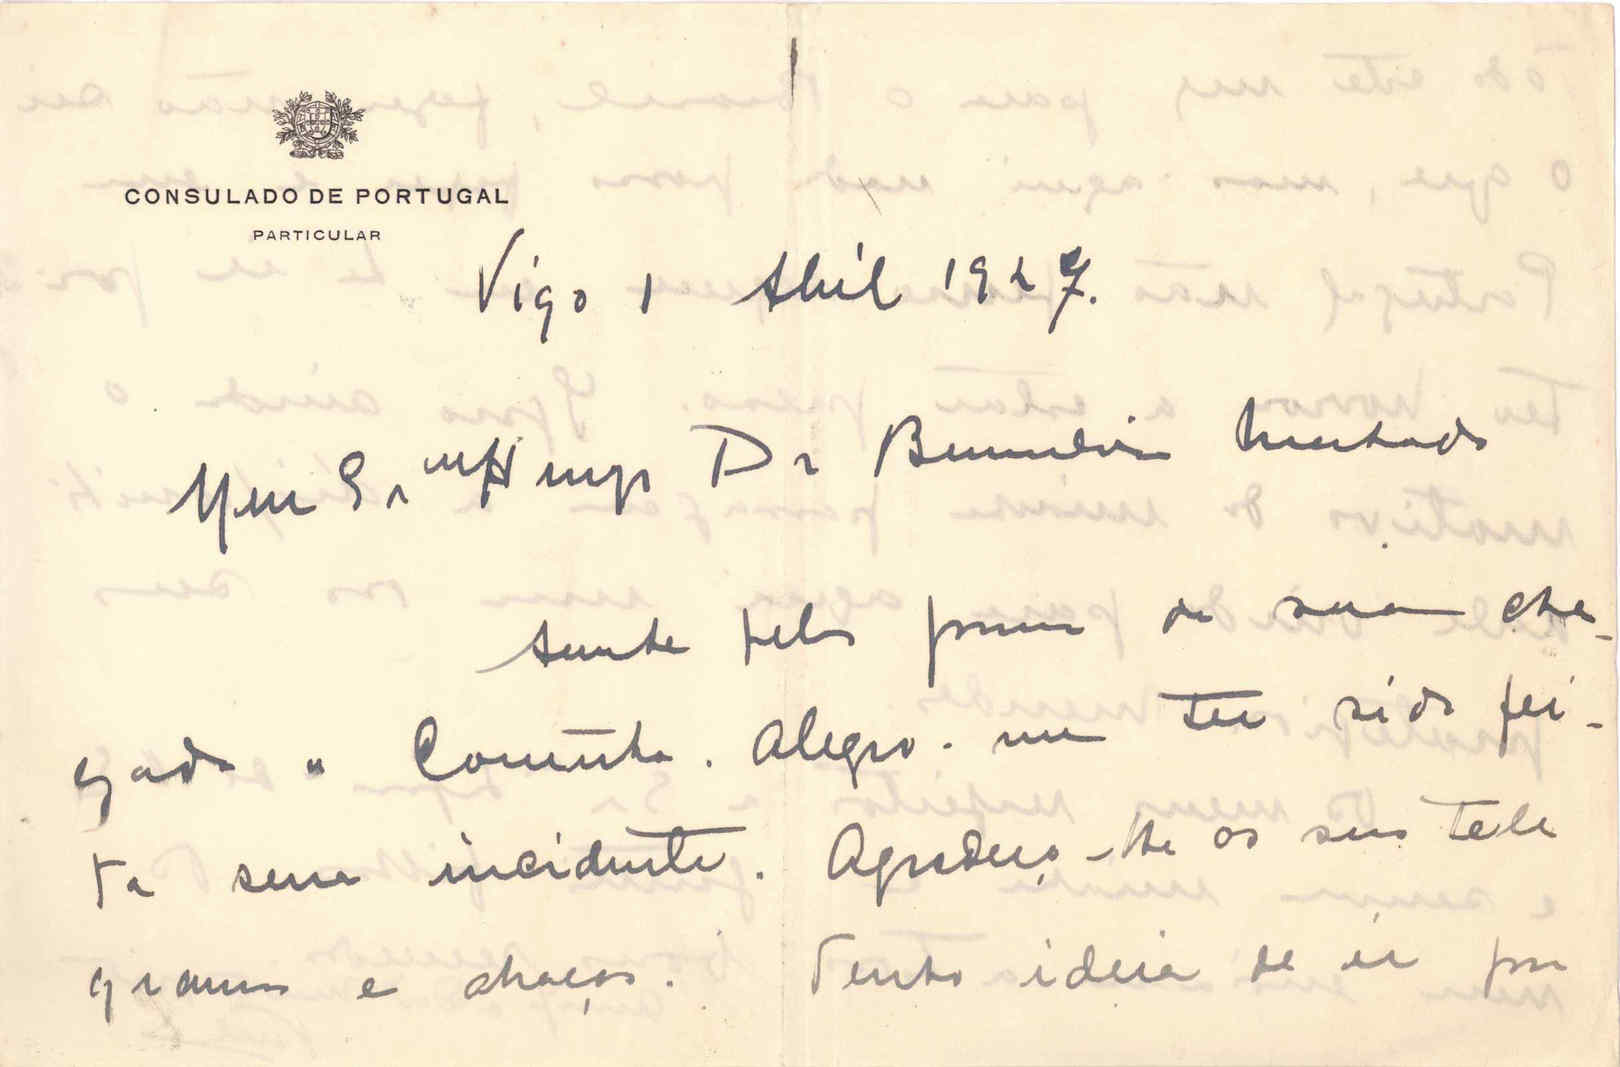 CONSULADO DE PORTUGAL
PARTICULAR
Vigo 1 Abril 1927.
Meu Sr. meu Amgo Dr Bernardino Machado
pelos de sua che-
gada a Corunha. Alegro-me ter sido fei-
ta sem incidente. Agradeço-lhe os seus tele
gramas e abraços. Tenho ideia de ir por